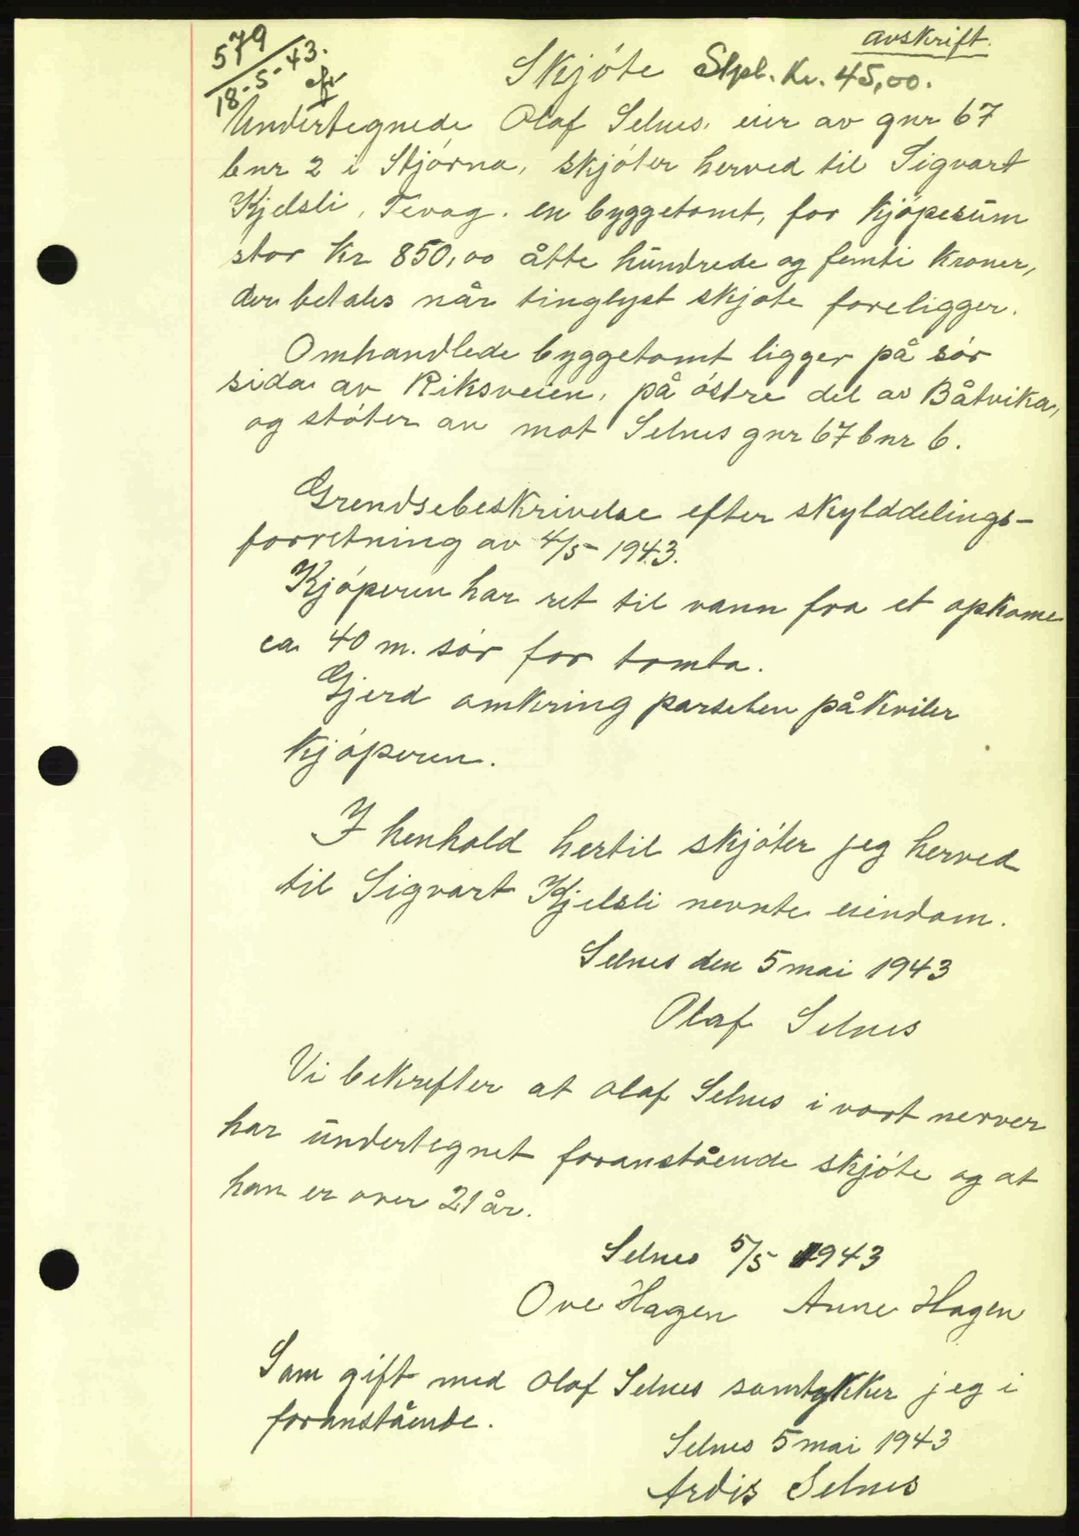 avskrift.
579
18-5-43.
Skjöte Stpl. Kr. 45,00.
Undertegnede Olaf Selnes, eier av gnr 67
bnr 2 i Stjörna, skjöter herved til Sigvart
Kjelsli, Tevag. en byggetomt, for kjöpesum
stor kr 850,00 åtte hundrede og femti kroner,
der betales når tinglyst skjöte foreligger.
Omhandlede byggetomt ligger på sör
sida av Riksveien, på östre del av Båtvika,
og stöter an mot Selnes gnr 67 bnr 6.
Grendsebeskrivelse efter skylddelings-
forretning av 4/5-1943.
Kjöperen har ret til vann fra et opkome
ca 40 m. sör for tomta.
Gjerd omkring parselen påkviler
kjöperen.
I henhold hertil skjöter jeg herved
til Sigvart Kjelsli nevnte eiendom.
Selnes den 5 mai 1943
Olaf Selnes
Vi bekrefter at Olaf Selnes i vort nerver
har undertegnet foranstående skjöte og at
han er over 21 år.
Selnes 5/5 1943
Ove Hagen Anne Hagen
Som gift med Olaf Selnes samtykker jeg i
foranstående.
Selnes 5 mai 1943
Ardis Selnes